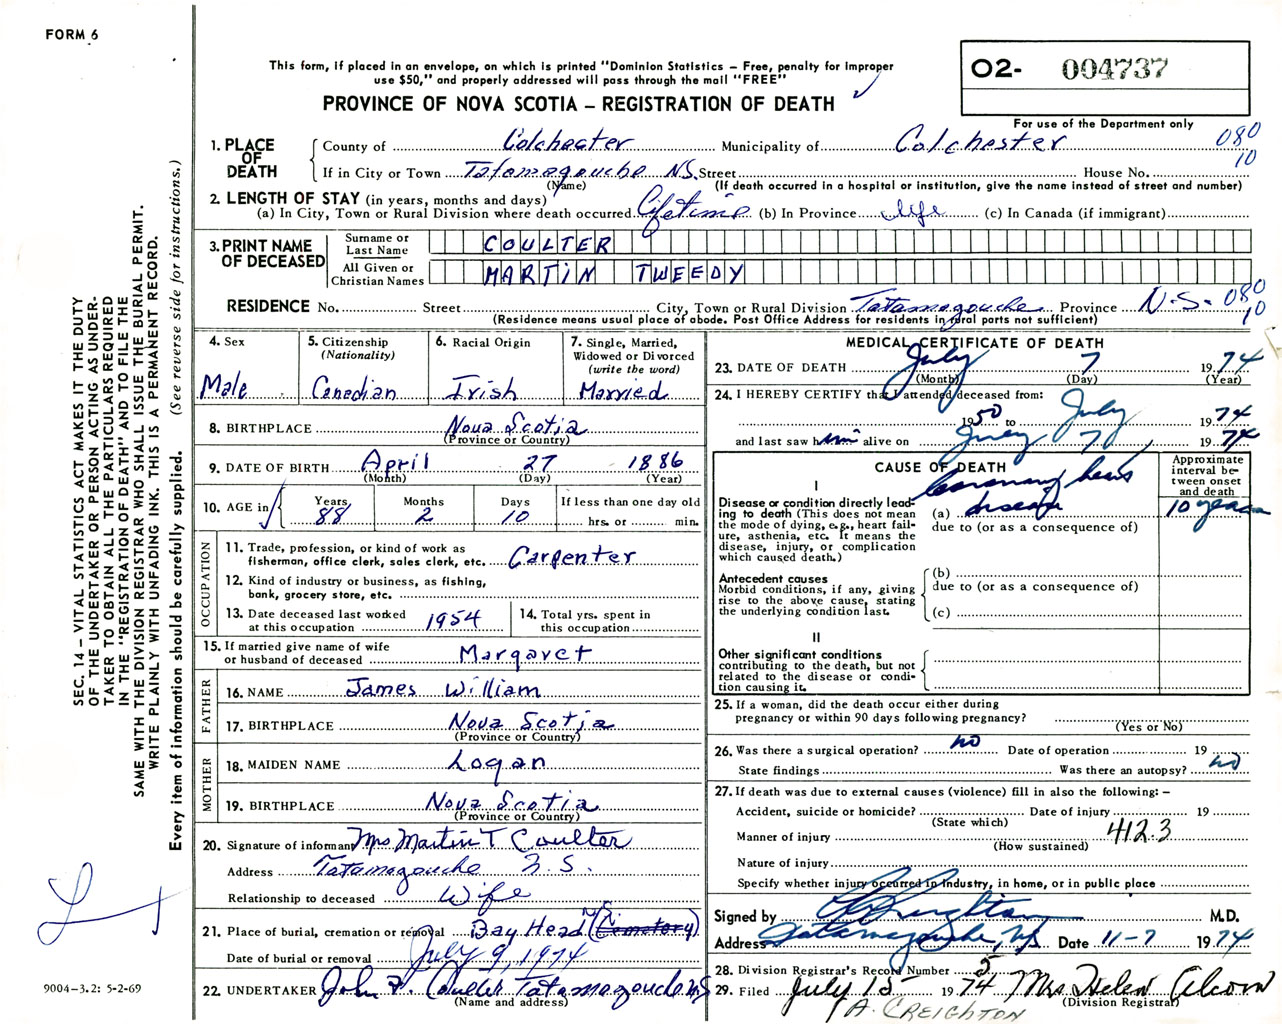 FORM 6
This form, if placed in an envelope, on which is printed "Dominion Statistics – Free, penalty for improper
use $50," and properly addressed will pass through the mail "FREE"
PROVINCE OF NOVA SCOTIA – REGISTRATION OF DEATH
O2- 004737
For use of the Department only
080
10
1. PLACE OF DEATH
County of Colchester Municipality of Colchester
If in City or Town Tatamagouche N.S. Street House No.
(Name) (If death occurred in a hospital or institution, give the name instead of street and number)
2. LENGTH OF STAY (in years, months and days)
(a) In City, Town or Rural Division where death occurred Lifetime (b) In Province life (c) In Canada (if immigrant)
3. PRINT NAME OF DECEASED
Surname or Last Name COULTER
All Given or Christian Names MARTIN TWEEDY
RESIDENCE No. Street City, Town or Rural Division Tatamagouche Province N.S. 080
10
(Residence means usual place of abode. Post Office Address for residents in rural parts not sufficient)
4. Sex
Male
5. Citizenship
(Nationality)
Canadian
6. Racial Origin
Irish
7. Single, Married,
Widowed or Divorced
(write the word)
Married
8. BIRTHPLACE Nova Scotia
(Province or Country)
9. DATE OF BIRTH April 27 1886
(Month) (Day) (Year)
10. AGE in Years Months Days If less than one day old
88 2 10 hrs. or min.
OCCUPATION
11. Trade, profession, or kind of work as
fisherman, office clerk, sales clerk, etc. Carpenter
12. Kind of industry or business, as fishing,
bank, grocery store, etc.
13. Date deceased last worked
at this occupation 1954
14. Total yrs. spent in
this occupation
15. If married give name of wife
or husband of deceased Margaret
FATHER
16. NAME James William
17. BIRTHPLACE Nova Scotia
(Province or Country)
MOTHER
18. MAIDEN NAME Logan
19. BIRTHPLACE Nova Scotia
(Province or Country)
20. Signature of informant Mrs Martin T Coulter
Address Tatamagouche N.S.
Relationship to deceased Wife
21. Place of burial, cremation or removal Bay Head N.S.
Date of burial or removal July 9, 1974
22. UNDERTAKER John F. Coulter Tatamagouche N.S.
(Name and address)
MEDICAL CERTIFICATE OF DEATH
23. DATE OF DEATH July 7 1974
(Month) (Day) (Year)
24. I HEREBY CERTIFY that I attended deceased from:
1950 to July 1974
and last saw him alive on July 7, 1974
CAUSE OF DEATH
Approximate
interval be-
tween onset
and death
I
Disease or condition directly lead-
ing to death (This does not mean
the mode of dying, e.g., heart fail-
ure, asthenia, etc. It means the
disease, injury, or complication
which caused death.)
(a) Coronary heart disease 10 years
due to (or as a consequence of)
Antecedent causes
Morbid conditions, if any, giving
rise to the above cause, stating
the underlying condition last.
(b)
due to (or as a consequence of)
(c)
II
Other significant conditions
contributing to the death, but not
related to the disease or condi-
tion causing it.
25. If a woman, did the death occur either during
pregnancy or within 90 days following pregnancy?
(Yes or No)
26. Was there a surgical operation? no Date of operation 19
State findings Was there an autopsy? no
27. If death was due to external causes (violence) fill in also the following: –
Accident, suicide or homicide? Date of injury 19
(State which)
Manner of injury 412.3
(How sustained)
Nature of injury
Specify whether injury occurred in Industry, in home, or in public place
Signed by Creighton M.D.
Address Tatamagouche, N.S. Date 11-7 1974
28. Division Registrar's Record Number 5
29. Filed July 15 1974 Mrs Helen Alcorn
(Division Registrar)
A. CREIGHTON
SEC. 14 – VITAL STATISTICS ACT MAKES IT THE DUTY
OF THE UNDERTAKER OR PERSON ACTING AS UNDER-
TAKER TO OBTAIN ALL THE PARTICULARS REQUIRED
IN THE "REGISTRATION OF DEATH" AND TO FILE THE
SAME WITH THE DIVISION REGISTRAR WHO SHALL ISSUE THE BURIAL PERMIT.
WRITE PLAINLY WITH UNFADING INK. THIS IS A PERMANENT RECORD.
Every item of information should be carefully supplied. (See reverse side for instructions.)
9004-3.2: 5-2-69